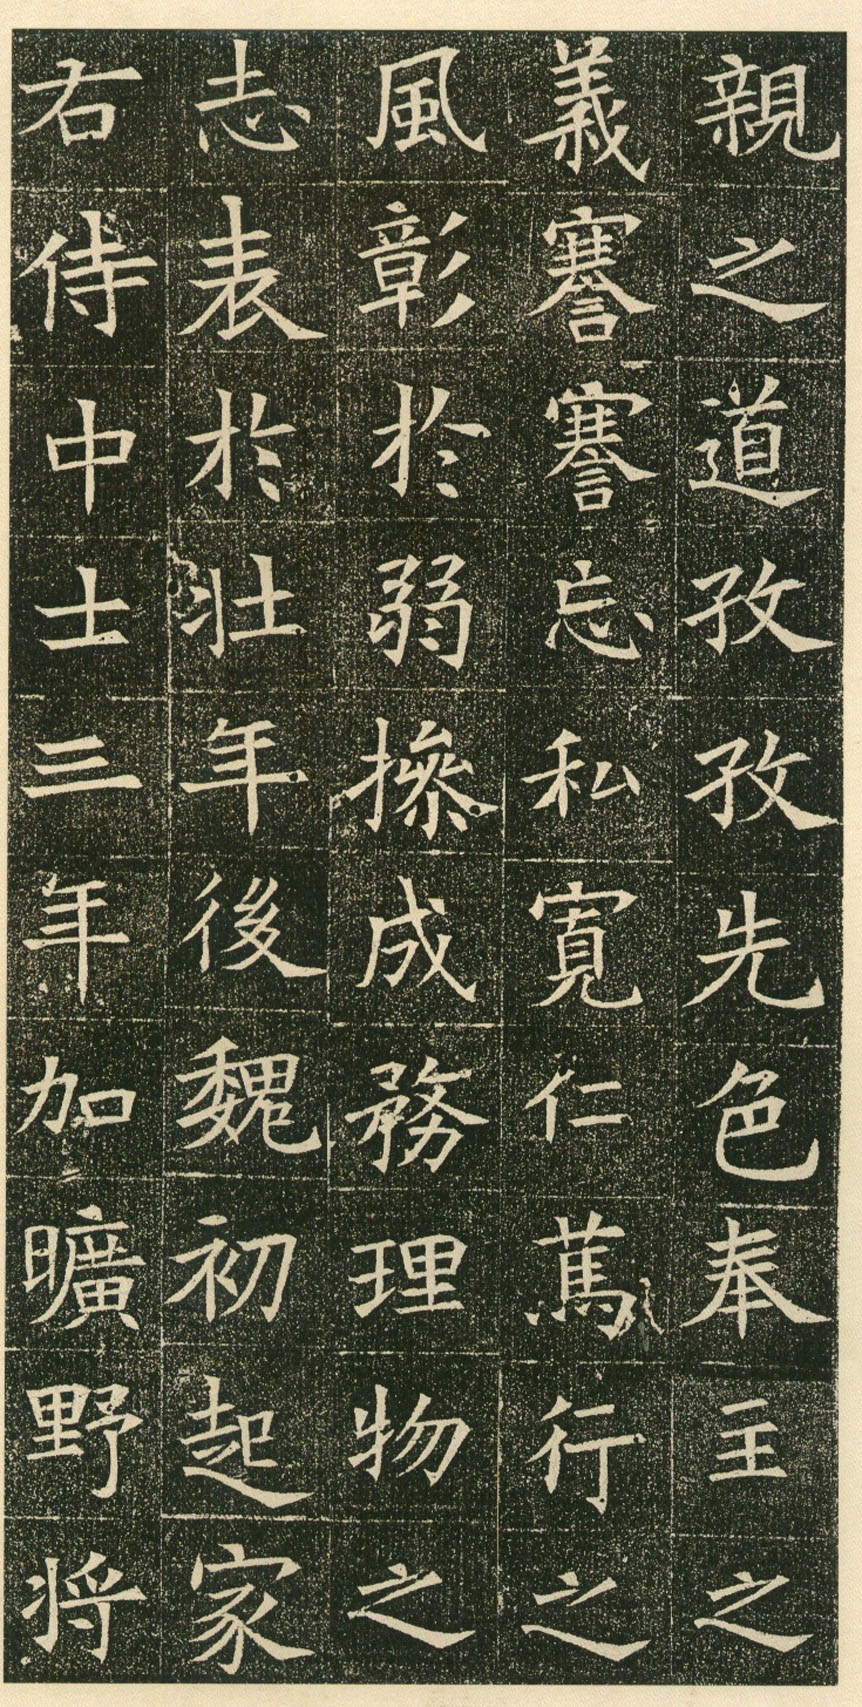 親之道孜孜先色奉主之
義謇謇忘私寛仁蔫行之
風彰於弱操成務理物之
志表於壯年後魏初起家
右侍中士三年加曠野将